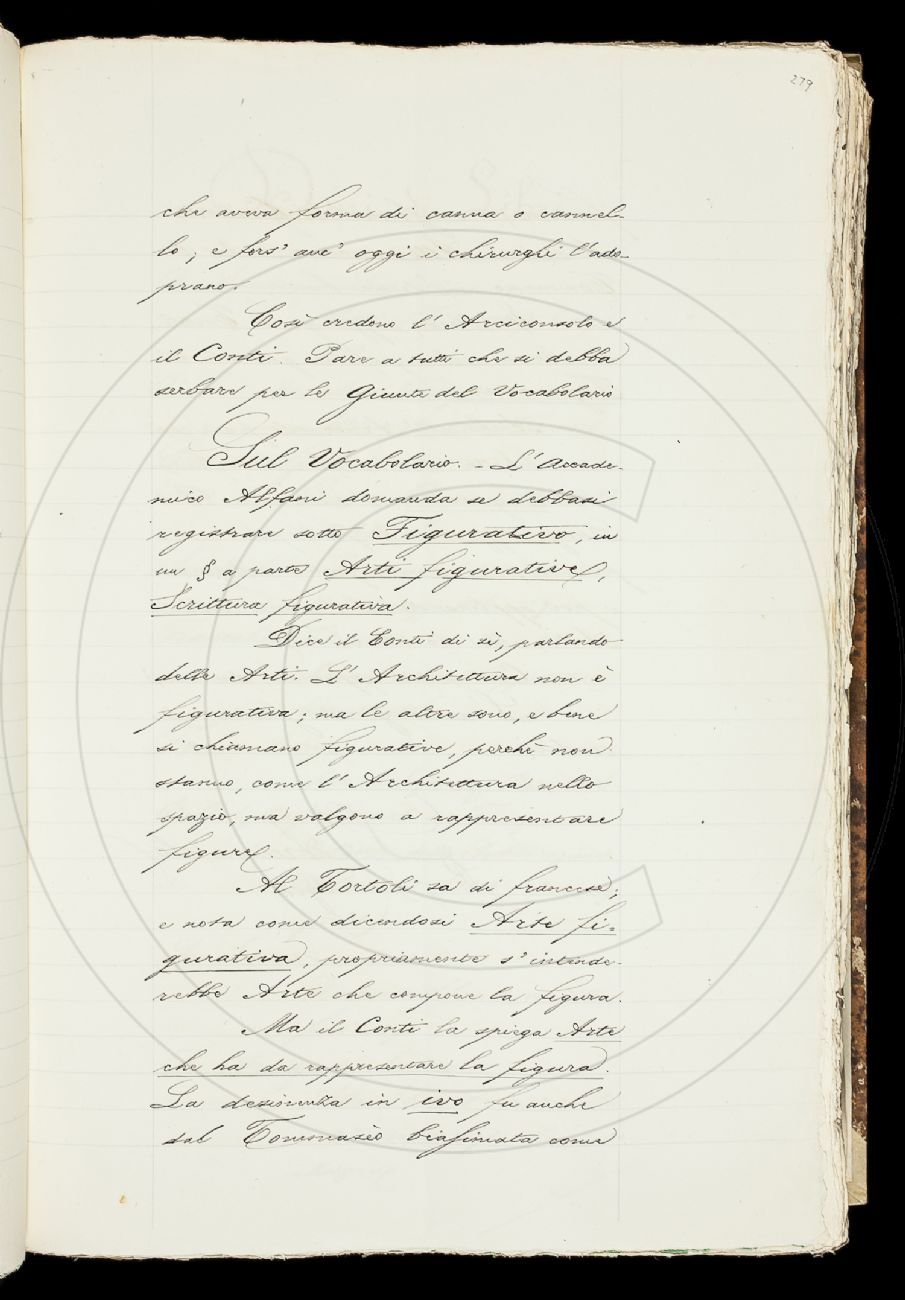 279
che aveva forma di canna o cannel-
lo; e fors' anc' oggi i chirurghi l'ado-
prano.
Così credono l' Arciconsolo e
il Conti. Pare a tutti che si debba
serbare per le Giunte del Vocabolario
Sul Vocabolario. - L' Accade-
mico Alfani domanda se debbasi
registrare sotto Figurativo, in
un § a parte Arti figurative,
Scrittura figurativa.
Dice il Conti di sì, parlando
delle Arti. L' Architettura non è
figurativa; ma le altre sono, e bene
si chiamano figurative, perchè non
stanno, come l' Architettura nello
spazio, ma valgono a rappresentare
figure.
Al Tortoli sa di francese;
e nota come dicendosi Arte fi-
gurativa, propriamente s' intende-
rebbe Arte che compone la figura.
Ma il Conti la spiega Arte
che ha da rappresentare la figura.
La desinenza in ivo fu anche
dal Tommasèo biasimata come